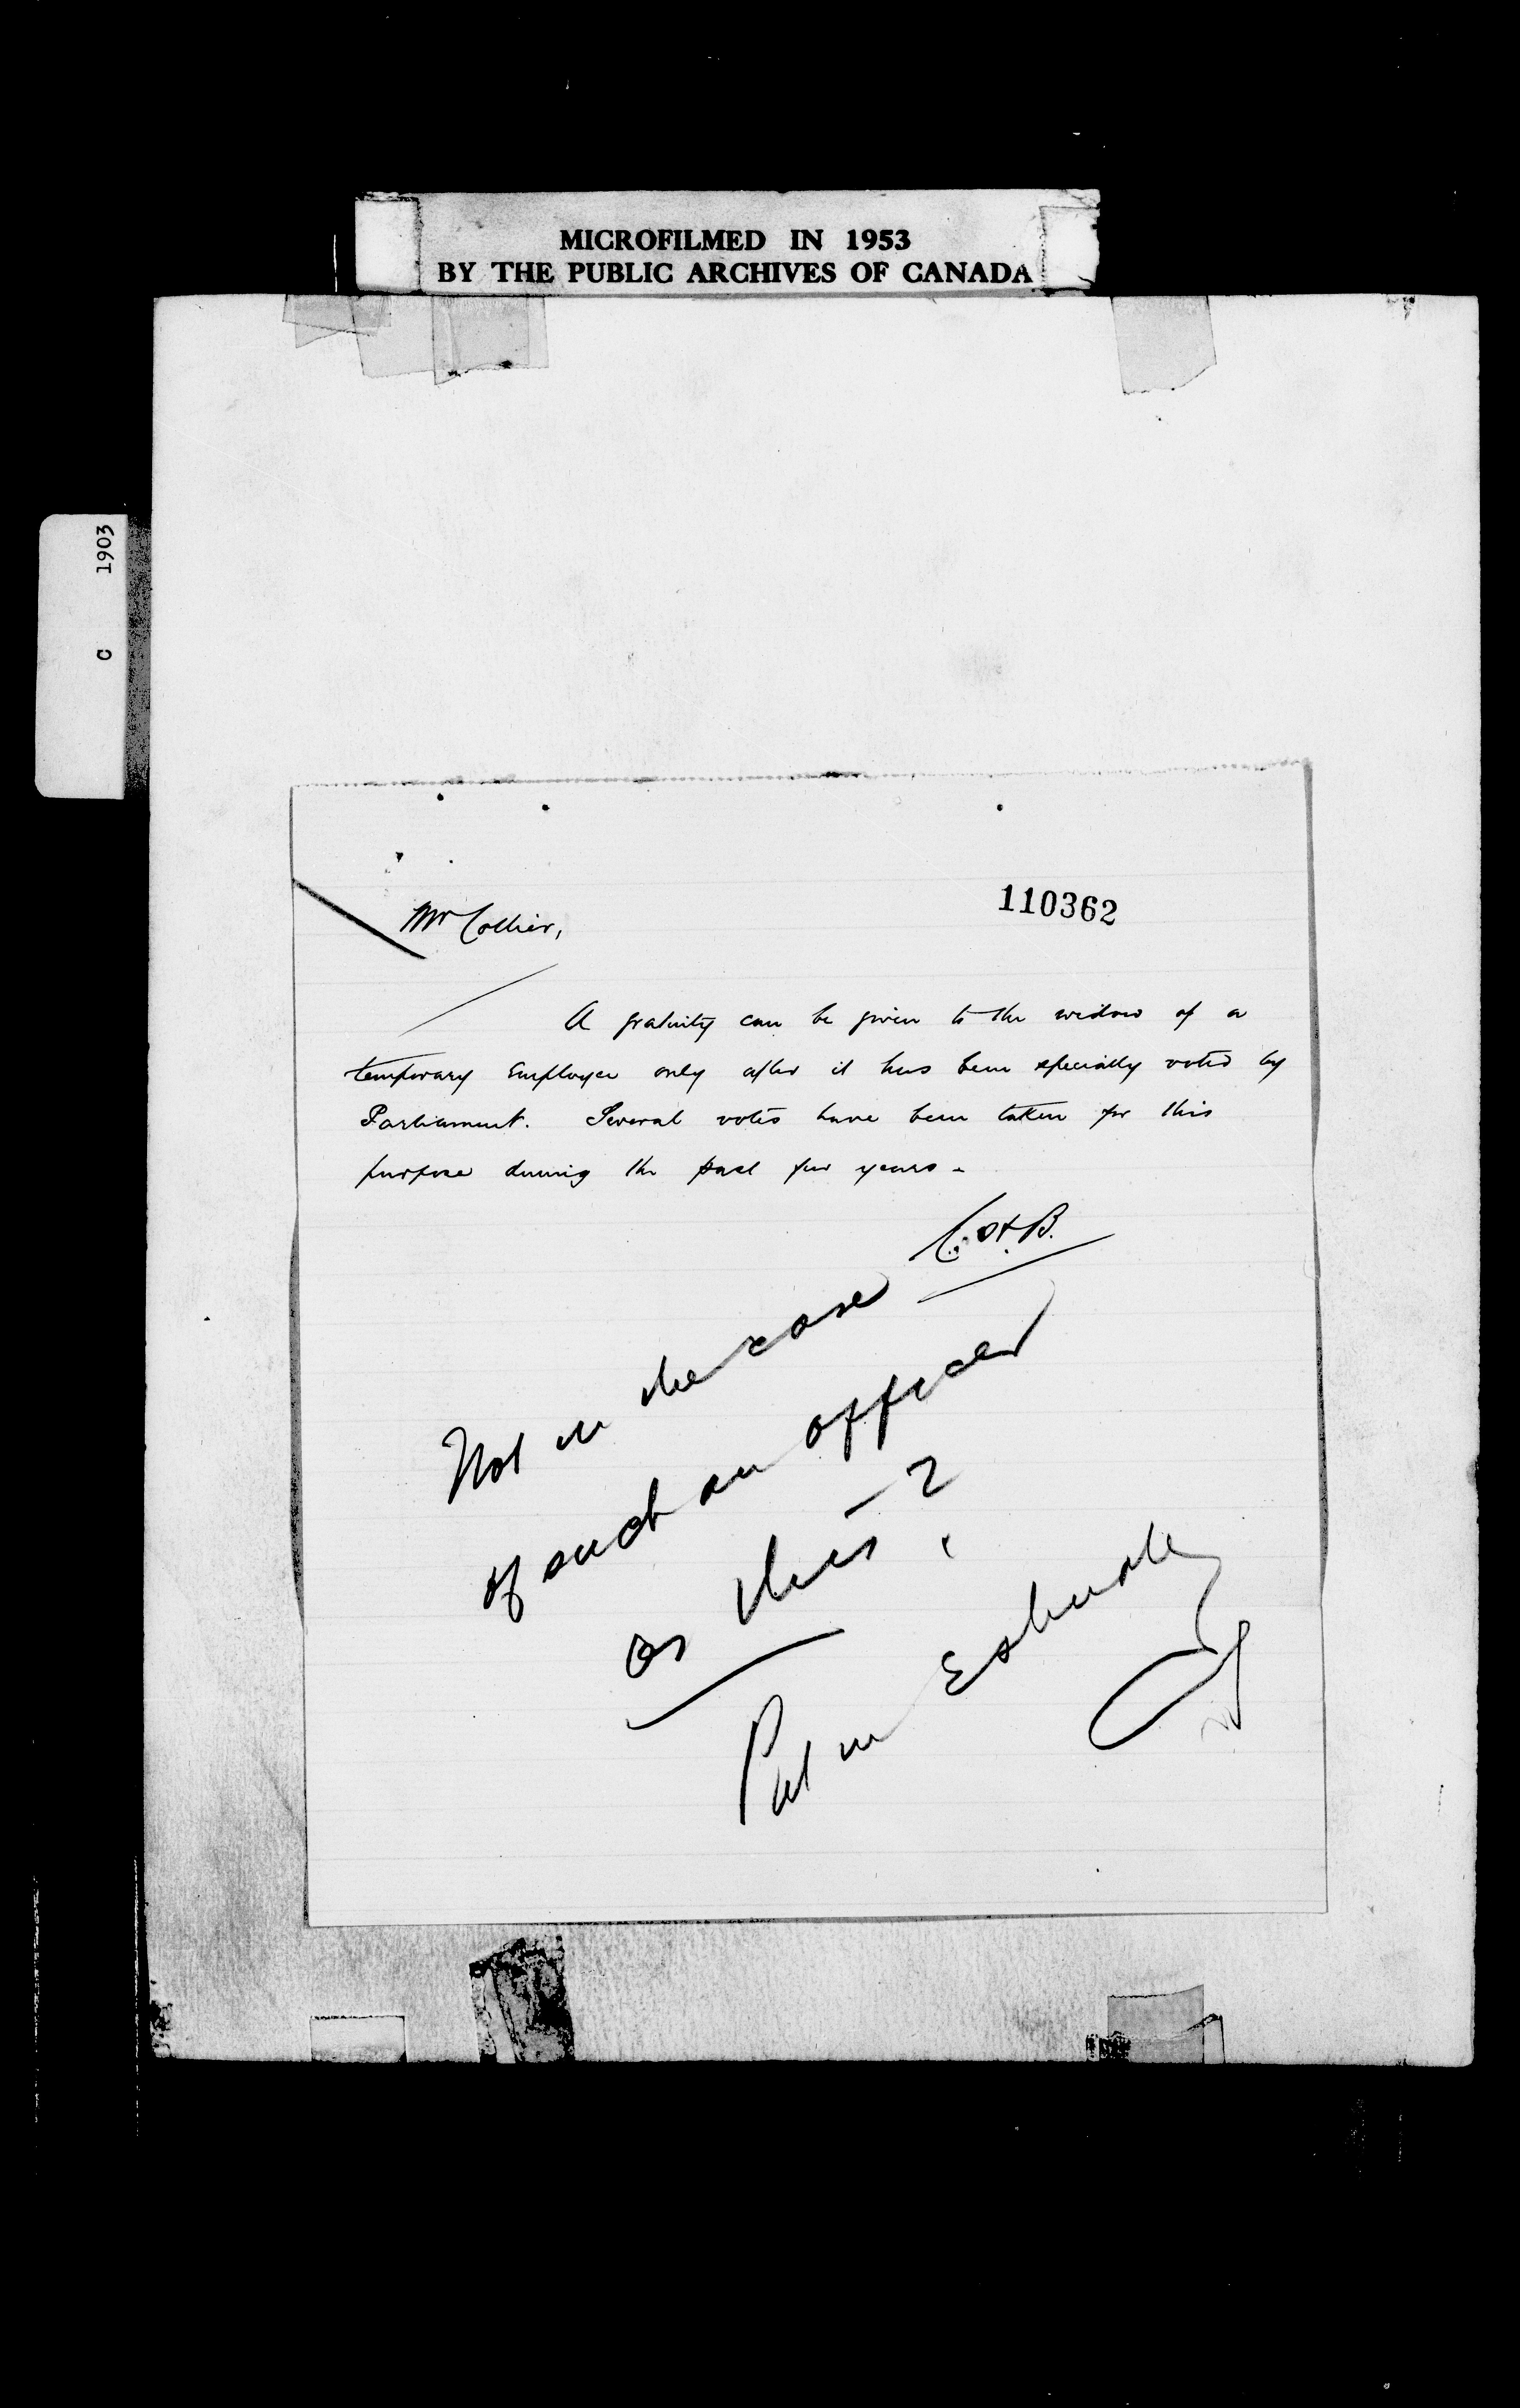 MICROFILMED IN 1953
BY THE PUBLIC ARCHIVES OF CANADA
C 1903
110362
Mr Collier,
A gratuity can be given to the widow of a
temporary Employee only after it has been specially voted by
Parliament. Several votes have been taken for this
purpose during the past few years -
C. St. B.
Not in the case
of such an officer
as this - ?
Put in